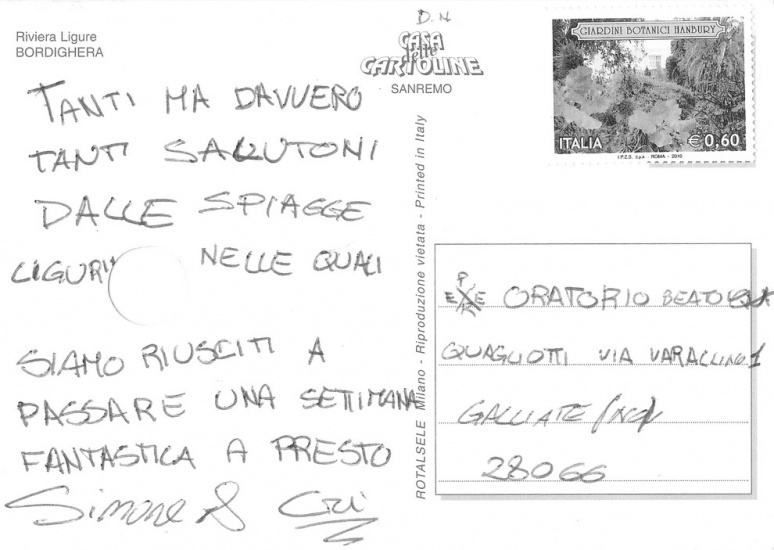 Riviera Ligure
BORDIGHERA
TANTI MA DAVVERO
TANTI SALUTONI
DALLE SPIAGGE
LIGURI NELLE QUALI
SIAMO RIUSCITI A
PASSARE UNA SETTIMANA
FANTASTICA A PRESTO
Simone & Cri
D.N
CASA
delle
CARTOLINE
SANREMO
ROTALSELE Milano - Riproduzione vietata - Printed in Italy
GIARDINI BOTANICI HANBURY
ITALIA € 0,60
I.P.Z.S. S.p.A. - ROMA - 2010
ORATORIO BEATO
QUAGLIOTTI VIA VARALLINO 1
GALLIATE (NO)
28066